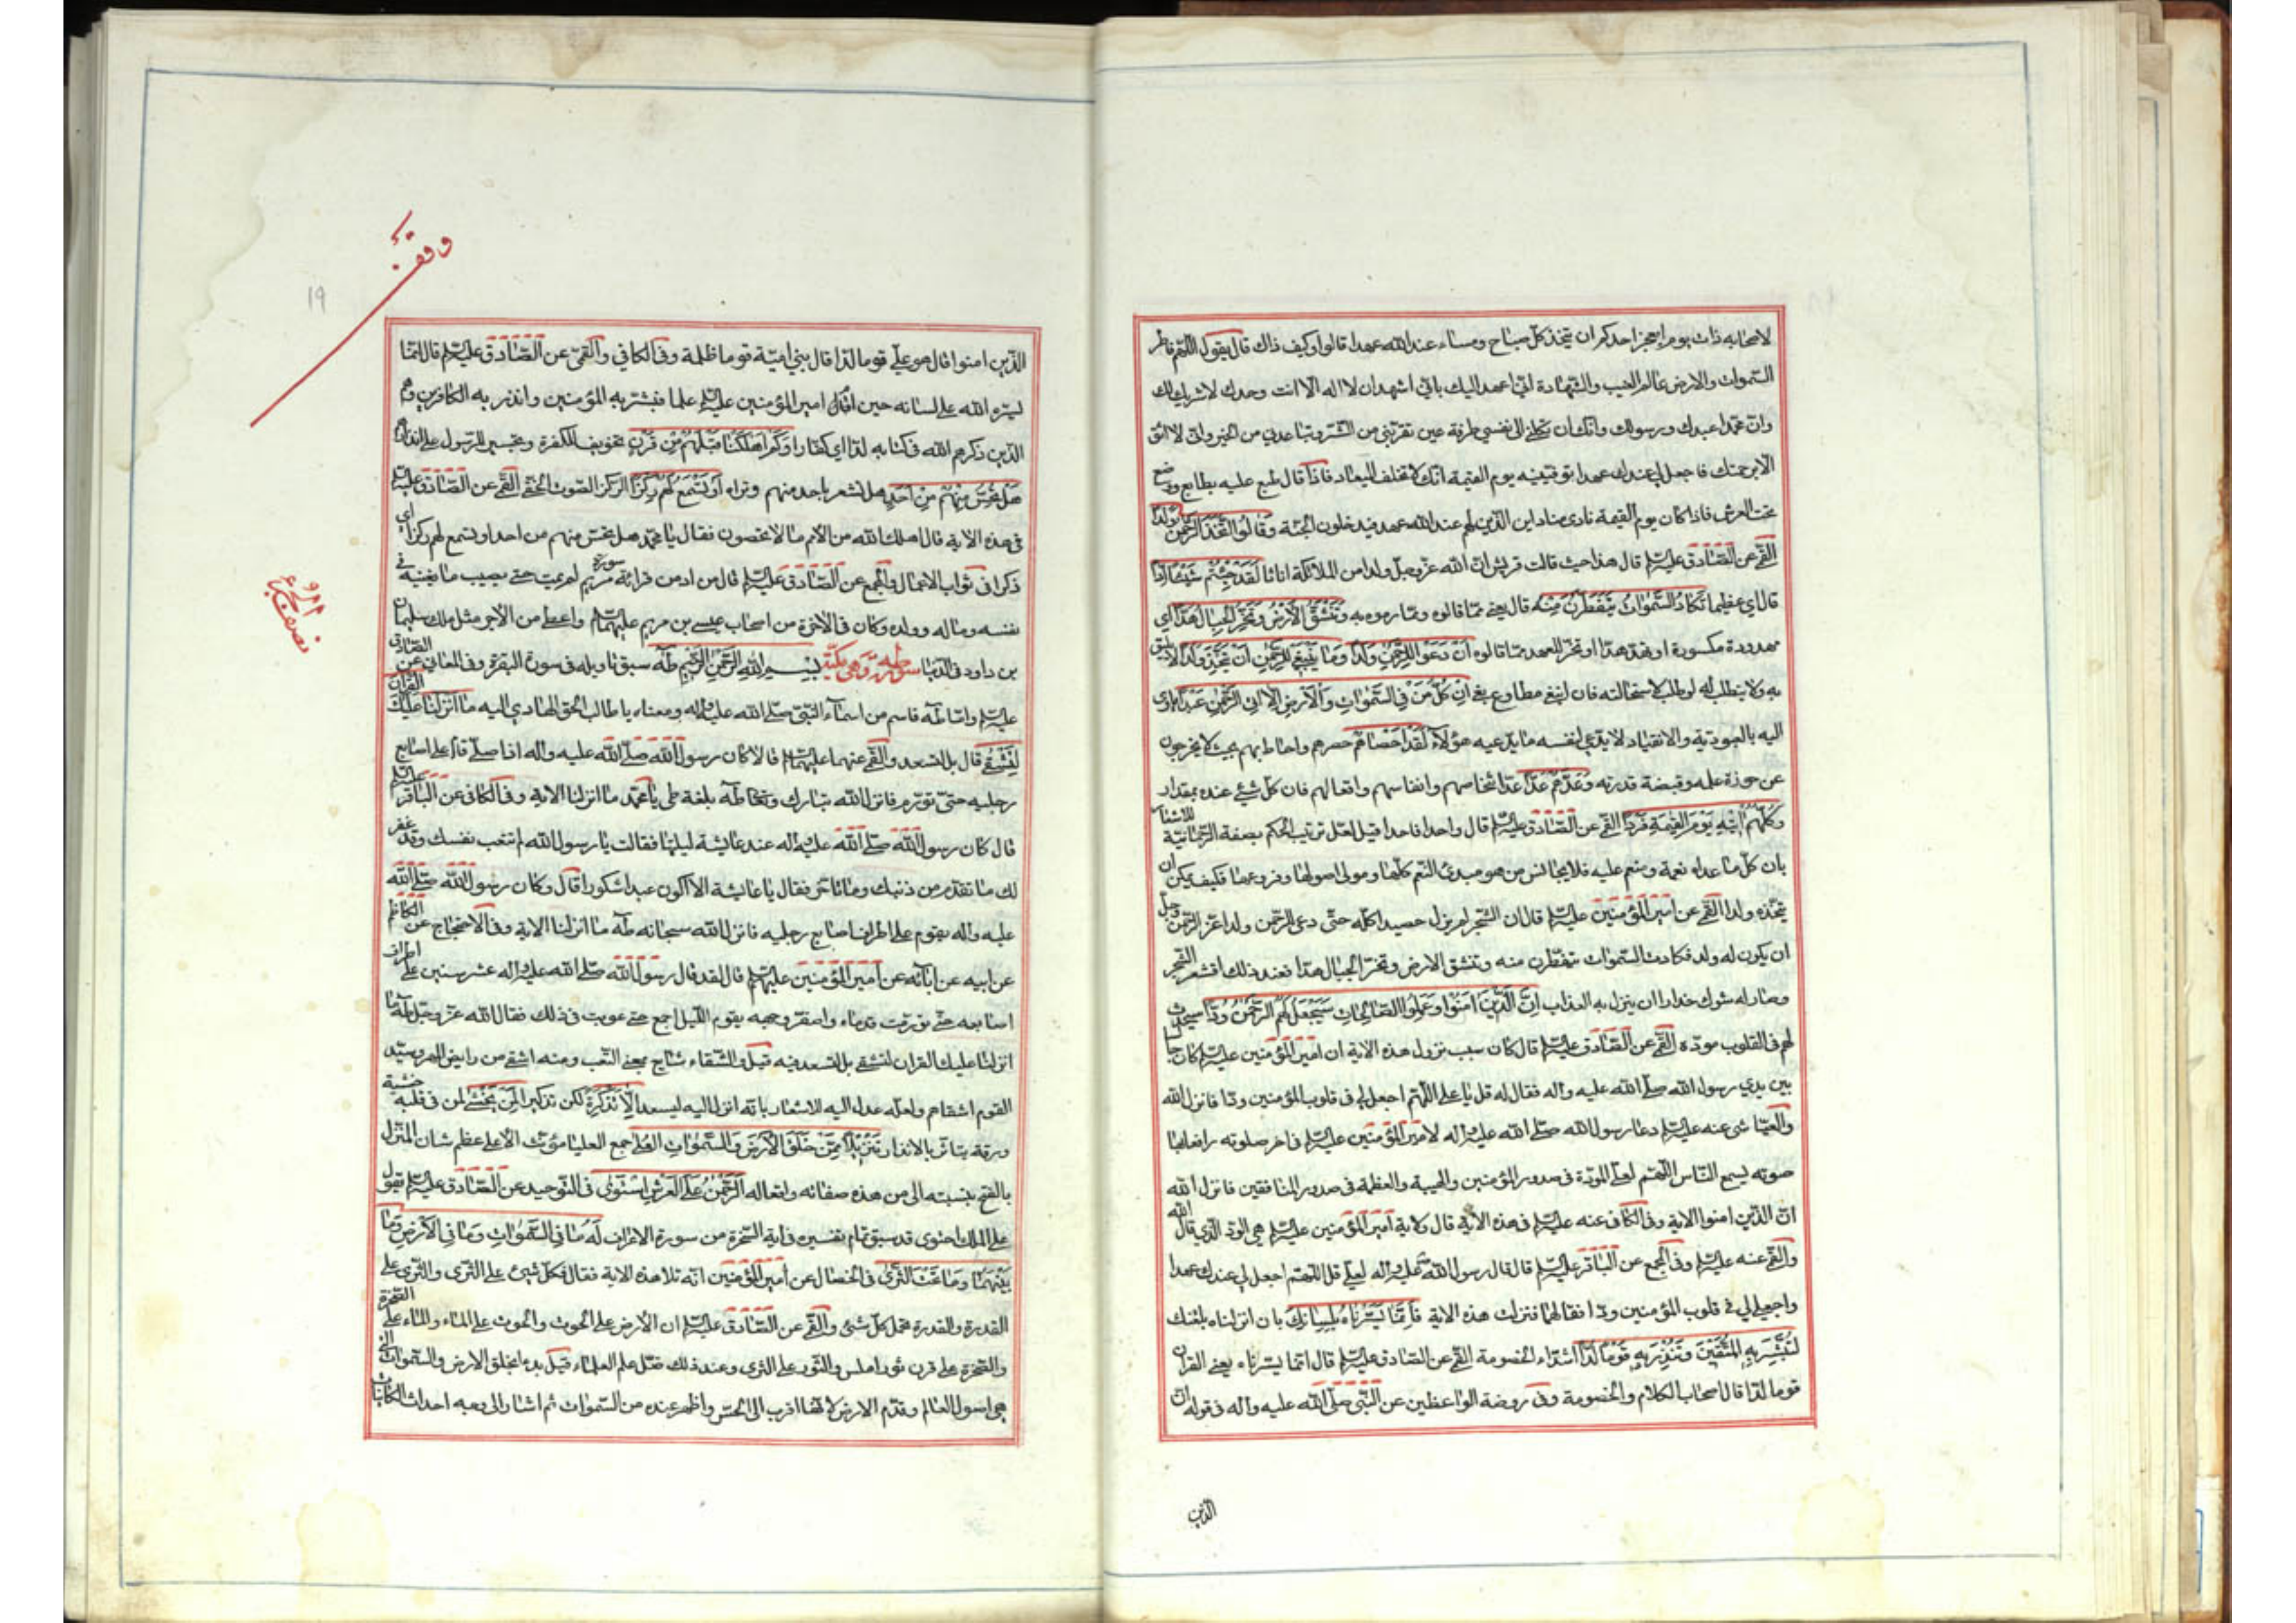 لاصحابه ذات يوم ايعجز احدكم ان يتخذ كلّ صباح ومساء عند الله عهدا قالوا وكيف ذاك قال يقول اللّهمّ فاطر
السّموات والارض عالم الغيب والشّهادة انّي اعهد اليك بانّي اشهد ان لا اله الا انت وحدك لا شريك لك
وانّ محمّدا عبدك ورسولك وانّك ان تكلني الى نفسي طرفة عين تقرّبني من الشّر وتباعدني من الخير وانّي لا اثق
الّا برحمتك فاجعل لي عندك عهدا توفّينيه يوم القيمة انّك لا تخلف الميعاد فاذا قال طبع عليه بطابع ووضع
تحت العرش فاذا كان يوم القيمة نادى مناد اين الّذين لهم عند الله عهد فيدخلون الجنّة وَقَالُوا اتَّخَذَ الرَّحْمٰنُ وَلَدًا
القمّي عن الصّادق عليه السّلم قال هذا حيث قالت قريش انّ الله عزّ وجلّ ولدا من الملائكة اناثا لَقَدْ جِئْتُمْ شَيْئًا اِدًّا
قال اي عظيما تَكَادُ السَّمٰوَاتُ يَتَفَطَّرْنَ مِنْهُ قال يعني ممّا قالوه وممّا رموه به وَتَنْشَقُّ الْاَرْضُ وَتَخِرُّ الْجِبَالُ هَدًّا اي
مهدودة مكسورة او تهدّ هدّا او تخرّ للهد ممّا قالوه اَنْ دَعَوْا لِلرَّحْمٰنِ وَلَدًا وَمَا يَنْبَغِي لِلرَّحْمٰنِ اَنْ يَتَّخِذَ وَلَدًا لا يليق
به ولا يتطلّب له لو طلب لاستحالته فان انبغى مطاوع بغى اِنْ كُلُّ مَنْ فِي السَّمٰوَاتِ وَالْاَرْضِ اِلَّا اٰتِي الرَّحْمٰنِ عَبْدًا ياوى
اليه بالعبوديّة والانقياد لا يدّعي لنفسه ما يدّعيه هؤلاء لَقَدْ اَحْصَاهُمْ حصرهم واحاط بهم بحيث لا يخرجون
عن حوزة علمه وقبضة قدرته وَعَدَّهُمْ عَدًّا عدّ اشخاصهم وانفاسهم وافعالهم فان كلّ شيء عنده بمقدار
وَكُلُّهُمْ اٰتِيهِ يَوْمَ الْقِيٰمَةِ فَرْدًا القمّي عن الصّادق عليه السّلم قال واحدا فواحدا قيل لعلّ ترتيب الحكم بصفة الرّحمانيّة للاشعار
بان كلّ ما عداه نعمة ومنعم عليه فلا يجانس من هو مبدئ النّعم كلّها ومولى اصولها وفروعها فكيف يمكن ان
يتّخذه ولدا القمّي عن امير المؤمنين عليه السّلم قال ان الشّجر لم يزل حصيدا كلّه حتّى دعي للرّحمن ولدا عزّ الرّحمن وجلّ
ان يكون له ولد فكادت السّموات يتفطّرن منه وتنشق الارض وتخرّ الجبال هدّا فعند ذلك اقشعر الشّجر
وصار له شوك حذارا ان ينزل به العذاب اِنَّ الَّذِينَ اٰمَنُوا وَعَمِلُوا الصَّالِحَاتِ سَيَجْعَلُ لَهُمُ الرَّحْمٰنُ وُدًّا سيحدث
لهم في القلوب مودّه القمّي عن الصّادق عليه السّلم قال كان سبب نزول هذه الاية ان امير المؤمنين عليه السّلم كان جالسا
بين يدي رسول الله صلّى الله عليه واله فقال له قل يا علي اللّهمّ اجعل لي في قلوب المؤمنين ودّا فانزل الله
والعيّاشي عنه عليه السّلم دعا رسول الله صلّى الله عليه واله لامير المؤمنين عليه السّلم في اخر صلوته رافعا بها
صوته يسمع النّاس اللّهمّ هب لعلي المودّة في صدور المؤمنين والهيبة والعظمة في صدور المنافقين فانزل الله
انّ الّذين امنوا الاية وفي الكافي عنه عليه السّلم في هذه الاية قال ولاية امير المؤمنين عليه السّلم هي الودّ الّذي قال الله
والقمّي عنه عليه السّلم وفي المجمع عن الباقر عليه السّلم قال قال رسول الله صلّى الله عليه واله لعلي قل اللّهمّ اجعل لي عندك عهدا
واجعل لي في قلوب المؤمنين ودّا فقالهما فنزلت هذه الاية فَاِنَّمَا يَسَّرْنَاهُ بِلِسَانِكَ بان انزلناه بلغتك
لِتُبَشِّرَ بِهِ الْمُتَّقِينَ وَتُنْذِرَ بِهِ قَوْمًا لُدًّا اشدّاء الخصومة القمّي عن الصّادق عليه السّلم قال انّما يسّرناه يعني القران
قوما لدّا قال اصحاب الكلام والخصومة وفي روضة الواعظين عن النّبي صلّى الله عليه واله في قوله انّ
الّذين
وقف
١٩
الّذين امنوا قال هو علي قوما لدّا قال بني اميّة قوما ظلمة وفي الكافي والقمّي عن الصّادق عليه السّلم قال انّما
يسّره الله على لسانه حين اقام امير المؤمنين عليه السّلم علما فبشّر به المؤمنين وانذر به الكافرين وهم
الّذين ذكرهم الله في كتابه لدّا اي كفّارا وَكَمْ اَهْلَكْنَا قَبْلَهُمْ مِنْ قَرْنٍ تخويف للكفرة وتجسير للرّسول على انذارهم
هَلْ تُحِسُّ مِنْهُمْ مِنْ اَحَدٍ هل تشعر باحد منهم وتراه اَوْ تَسْمَعُ لَهُمْ رِكْزًا الرّكز الصّوت الخفي القمّي عن الصّادق عليه السّلم
في هذه الاية قال اهلك الله من الامم ما لا تحصون فقال يا محمّد هل تحسّ منهم من احد او تسمع لهم ركزا اي
ذكرا في ثواب الاعمال والمجمع عن الصّادق عليه السّلم قال من ادمن قرائة سورة مريم لم يمت حتّى يصيب ما يغنيه في
نفسه وماله وولده وكان في الاخرة من اصحاب عيسى بن مريم عليهما السّلم واعطي من الاجر مثل ملك سليمان
بن داود في الدّنيا سورة طه وهي مكّيّة بِسْمِ اللهِ الرَّحْمٰنِ الرَّحِيمِ طٰهٰ سبق تاويله في سورة البقرة وفي المعاني عن الصّادق
عليه السّلم وامّا طه فاسم من اسماء النّبيّ صلّى الله عليه واله ومعناه يا طالب الحق الهادي اليه مَا اَنْزَلْنَا عَلَيْكَ الْقُرْاٰنَ
لِتَشْقٰى قال بل لتسعد والقمّي عنهما عليهما السّلم قالا كان رسول الله صلّى الله عليه واله اذا صلّى قام على اصابع
رجليه حتّى تورّم فانزل الله تبارك وتعالى طه بلغة طي يا محمّد ما انزلنا الاية وفي الكافي عن الباقر عليه السّلم
قال كان رسول الله صلّى الله عليه واله عند عايشة ليلتها فقالت يا رسول الله لم تتعب نفسك وقد غفر
لك ما تقدّم من ذنبك وما تاخّر فقال يا عايشة الا اكون عبدا شكورا قال وكان رسول الله صلّى الله
عليه واله يقوم على اطراف اصابع رجليه فانزل الله سبحانه طه ما انزلنا الاية وفي الاحتجاج عن الكاظم
عن ابيه عن ابائه عن امير المؤمنين عليهم السّلم قال لقد قام رسول الله صلّى الله عليه واله عشر سنين على اطراف
اصابعه حتّى تورّمت قدماه واصفرّ وجهه يقوم اللّيل اجمع حتّى عوتب في ذلك فقال الله عزّ وجلّ طه ما
انزلنا عليك القران لتشقى بل لتسعد فيه قيل والشّقاء شايع بمعنى التّعب ومنه اشقى من رايض المهر وسيّد
القوم اشقاهم ولعلّه عدل اليه للاشعار بانّه انزل اليه ليسعد اِلَّا تَذْكِرَةً لكن تذكيرا لِمَنْ يَخْشٰى لمن في قلبه خشية
ورقة يتاثّر بالانذار تَنْزِيلًا مِمَّنْ خَلَقَ الْاَرْضَ وَالسَّمٰوَاتِ الْعُلٰى جمع العليا مؤنّث الاعلى عظم شان المنزل
بالفتح بنسبته الى من هذه صفاته وافعاله اَلرَّحْمٰنُ عَلَى الْعَرْشِ اسْتَوٰى في التّوحيد عن الصّادق عليه السّلم يقول
على الملك احتوى قد سبق تمام تفسيره في اية السّخرة من سورة الاعراف لَهُ مَا فِي السَّمٰوَاتِ وَمَا فِي الْاَرْضِ وَمَا
بَيْنَهُمَا وَمَا تَحْتَ الثَّرٰى في الخصال عن امير المؤمنين انّه تلا هذه الاية فقال فكلّ شيئ على الثّرى والثّرى على
القدرة والقدرة تحمل كلّ شئ والقمّي عن الصّادق عليه السّلم ان الارض على الحوت والحوت على الماء والماء على الصّخرة
والصّخرة على قرن ثور املس والثّور على الثرى وعند ذلك ضلّ علم العلماء قيل بدء بخلق الارض والسّموات الّتي
هي اصول العالم وقدّم الارض لانّها اقرب الى الحسّ واظهر عنده من السّموات ثم اشار الى وجه احداث الكاينات